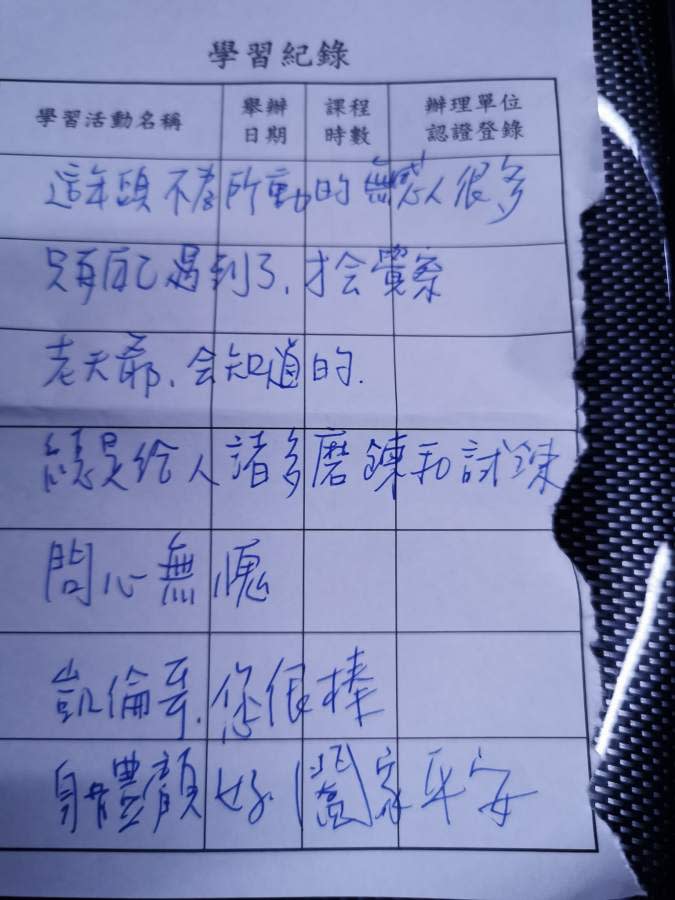 學習紀錄
學習活動名稱 舉辦日期 課程時數 辦理單位認證登錄
這年頭不為所動的無感人很多
只有自己遇到了,才会覺察
老天爺、会知道的.
總是給人諸多磨鍊和試鍊
問心無愧
凱倫哥.您很棒
身體顧好 家平安